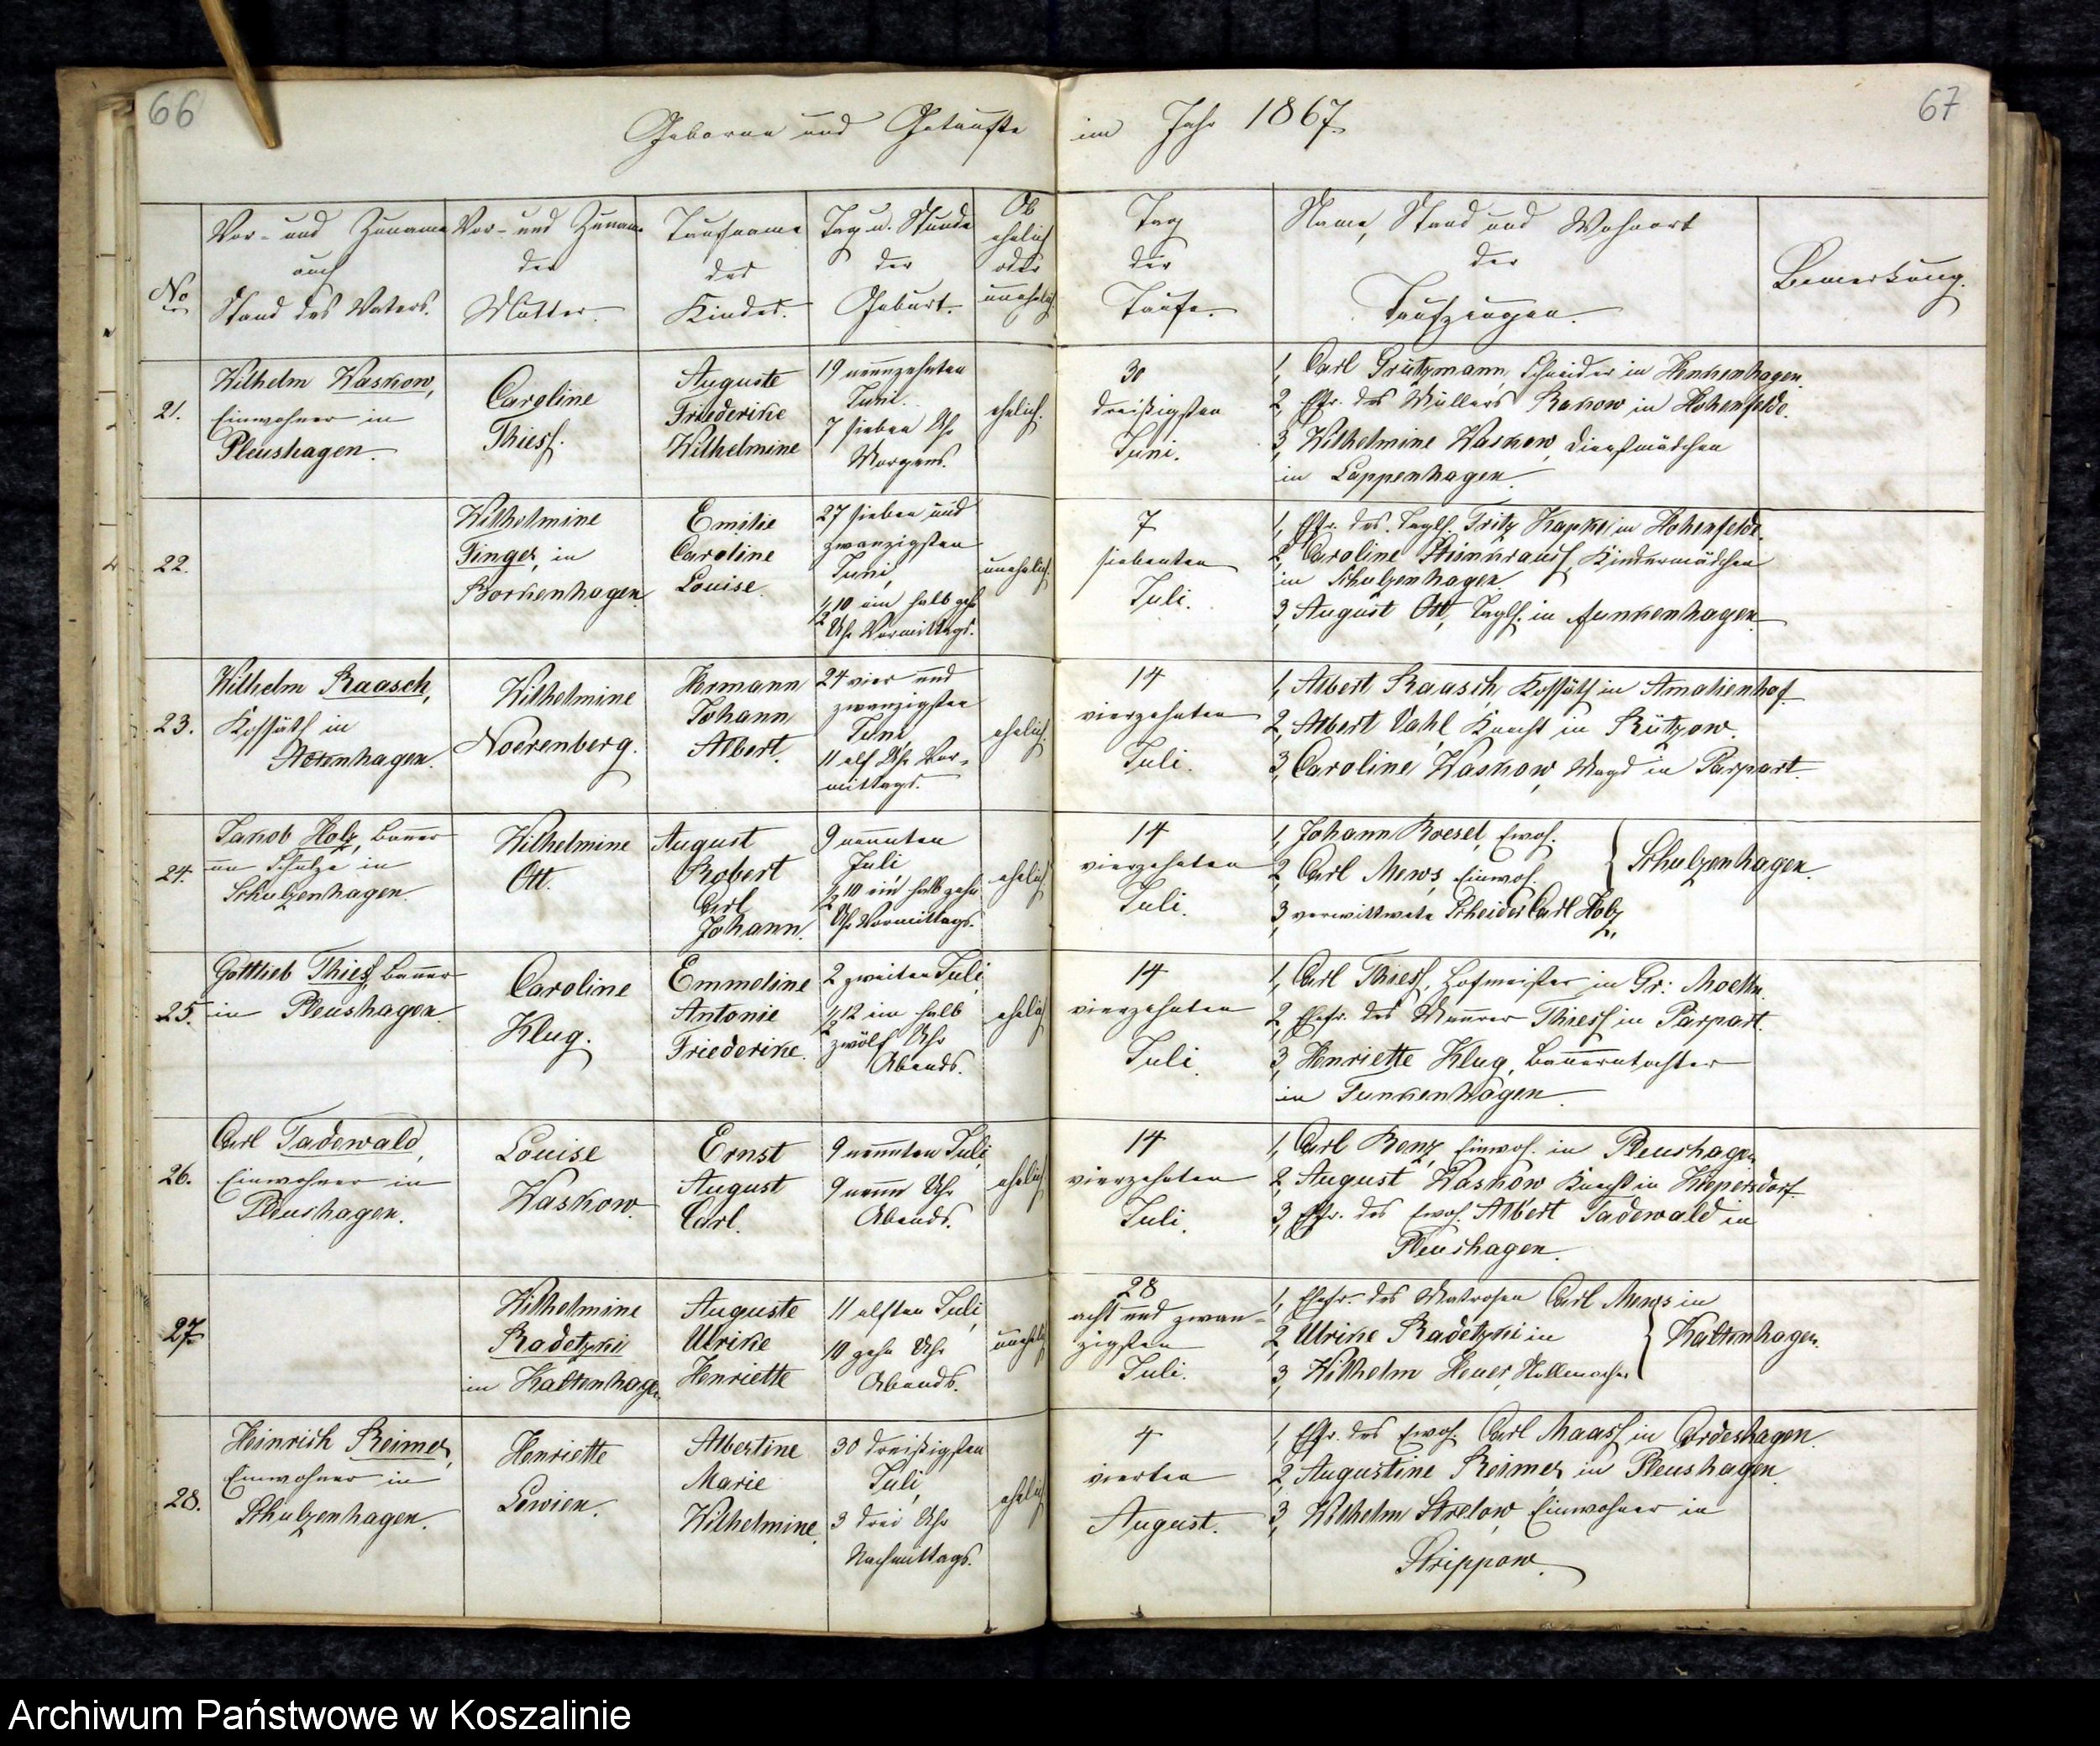 66
Geborne und Getaufte
im Jahr 1867.
67
No
Vor- und Zuname
auch
Stand des Vaters.
Vor- und Zuname
der
Mutter.
Taufname
des
Kindes.
Tag u. Stunde
der
Geburt.
Ob
ehelich
oder
unehelich
Tag
der
Taufe.
Name, Stand und Wohnort
der
Taufzeugen.
Bemerkung.
21.
Wilhelm Waskow,
Einwohner in
Pleushagen.
Caroline
Thiess.
Auguste
Friederike
Wilhelmine
19 neunzehnten
Juni.
7 sieben Uhr
Morgens.
ehelich.
30
dreißigsten
Juni.
1, Carl Grützmann, Schneider in Henkenhagen.
2, Efr. des Müllers Rakow in Hohenfelde.
3, Wilhelmine Waskow, Dienstmädchen
in Lappenhagen.
22.
Wilhelmine
Finger, in
Borkenhagen.
Emilie
Caroline
Louise.
27 sieben und
zwanzigsten
Juni,
1/2 10 ein halb zehn
Uhr Vormittags.
unehelich.
7
siebenten
Juli.
1, Efr. des Taglh. Fritz Kapke in Hohenfelde.
2, Caroline Steinkrauss, Kindermädchen
in Schulzenhagen.
3, August Ott, Taglh. in Funkenhagen.
23.
Wilhelm Raasch,
Kossäth in
Wilhelmine
Noerenberg.
Hermann
Johann
Albert.
24 vier und
zwanzigsten
Juni
11 elf Uhr Vor-
mittags.
ehelich.
14
vierzehnten
Juli.
1, Albert Raasch, Kossäth in Amalienhof.
2, Albert Vahl, Knecht in Rützow.
3, Caroline Waskow, Magd in Parpart.
24.
Jakob Holz, Bauer
un Schulze in
Schulzenhagen.
Wilhelmine
Ott.
August
Robert
Carl
Johann.
9 neunten
Juli
1/2 10 ein halb zehn
Uhr Vormittags.
ehelich.
14
vierzehnten
Juli.
1, Johann Roesel, Ewoh.
2, Carl Mews, Einwoh.
3, verwittwete Carl Holz,
Schulzenhagen.
25.
Gottlieb Thiess, Bauer
in Pleushagen.
Caroline
Klug.
Emmeline
Antonie
Friederike.
2 zweiten Juli,
1/2 12 ein halb
zwölf Uhr
Abends.
ehelich
14
vierzehnten
Juli.
1, Carl Thiess, Hofmeister in Gr: Moelln.
2, Ehefr. des Maurer Thiess in Parpart.
3, Henriette Klug, Bauerntochter
in Funkenhagen.
26.
Carl Tadewald,
Einwohner in
Pleushagen.
Louise
Waskow.
Ernst
August
Carl.
9 neunten Juli,
9 neun Uhr
Abends.
ehelich
14
vierzehnten
Juli.
1, Carl Benz, Einwoh. in Pleushagen
2, August Waskow Knecht in Kiepersdorf.
3, Efr. des Ewoh. Albert Tadewald in
Pleushagen.
27.
Wilhelmine
Radetzki
in Kaltenhagen.
Auguste
Ulrike
Henriette
11 elften Juli,
10 zehn Uhr
Abends.
unehelich
28
acht und zwan-
zigsten
Juli.
1, Ehefr. des Matrosen Carl Mews in
2, Ulrike Radetzki in
3, Wilhelm Heuer, Stellmacher
Kaltenhagen.
28.
Heinrich Reimer,
Einwohner in
Schulzenhagen.
Henriette
Lewien.
Albertine
Marie
Wilhelmine.
30 dreißigsten
Juli,
3 drei Uhr
Nachmittags.
ehelich
4
vierten
August.
1, Efr. des Ewoh. Carl Maass in Cordeshagen.
2, Augustine Reimer, in Pleushagen.
3, Wilhelm Strelow, Einwohner in
Strippow.
Archiwum Państwowe w Koszalinie